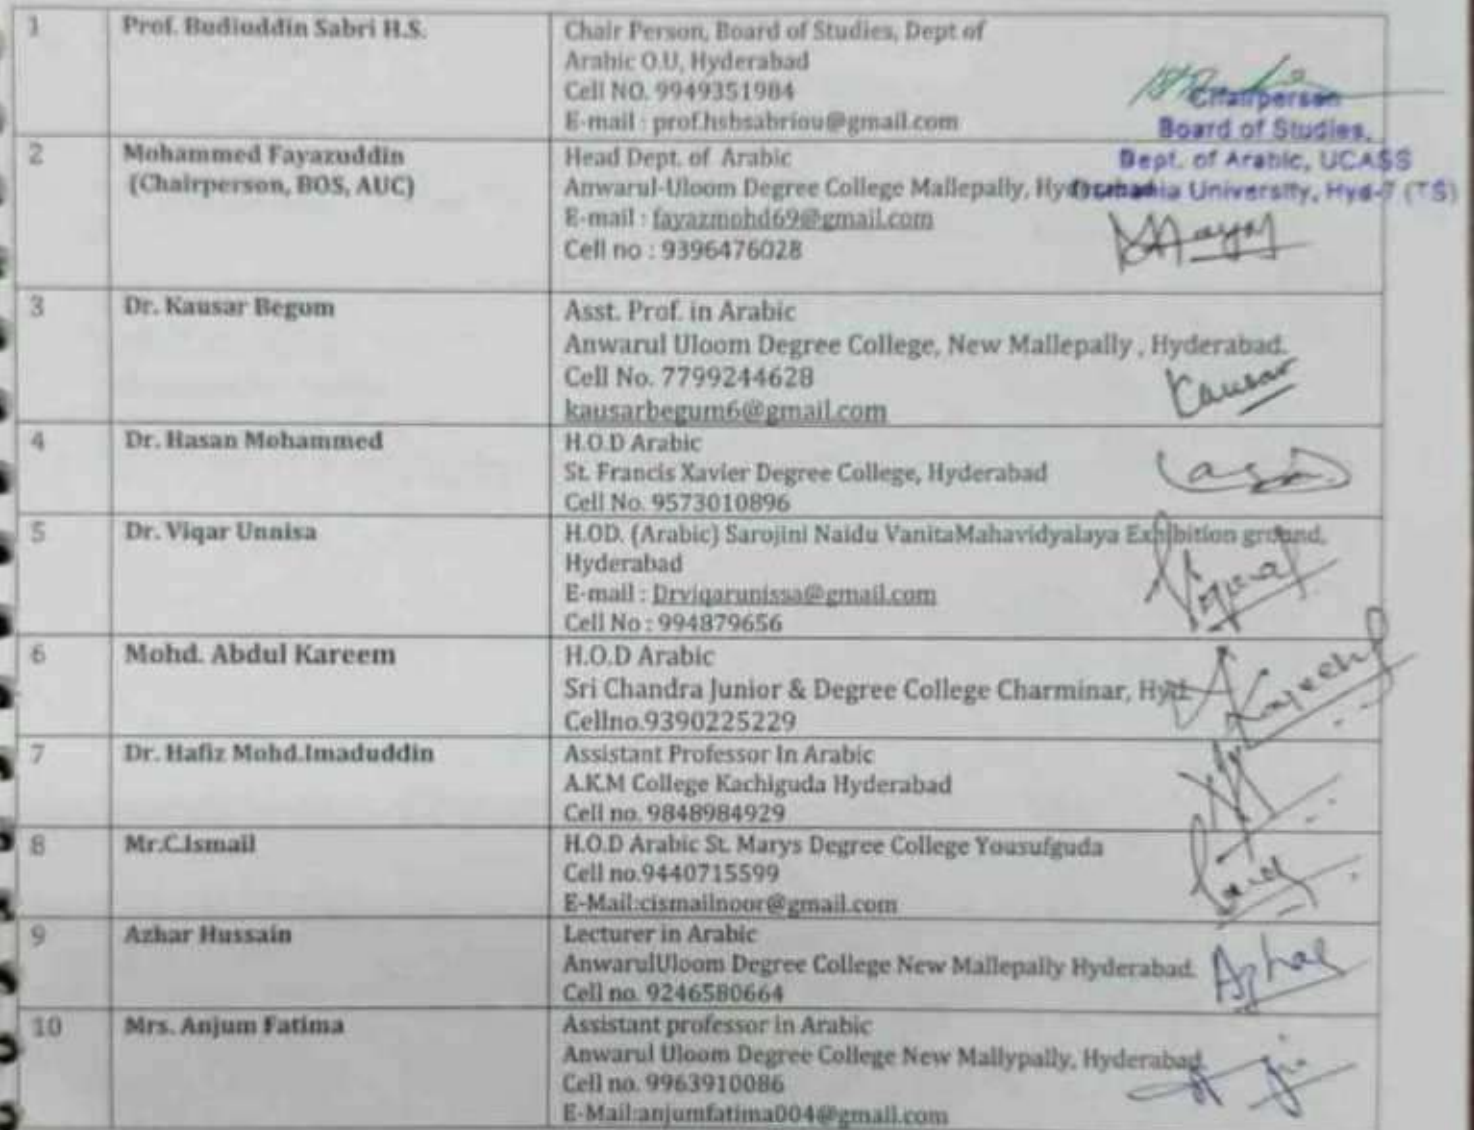 1
Prof. Budiuddin Sabri H.S.
Chair Person, Board of Studies, Dept of
Arabic O.U, Hyderabad
Cell NO. 9949351984
E-mail : prof.hsbsabriou@gmail.com
Chairperson
Board of Studies,
Dept. of Arabic, UCASS
Osmania University, Hyd-7 (TS)
2
Mohammed Fayazuddin
(Chairperson, BOS, AUC)
Head Dept. of Arabic
Anwarul-Uloom Degree College Mallepally, Hyderabad
E-mail : fayazmohd69@gmail.com
Cell no : 9396476028
3
Dr. Kausar Begum
Asst. Prof. in Arabic
Anwarul Uloom Degree College, New Mallepally , Hyderabad.
Cell No. 7799244628
kausarbegum6@gmail.com
Kausar
4
Dr. Hasan Mohammed
H.O.D Arabic
St. Francis Xavier Degree College, Hyderabad
Cell No. 9573010896
5
Dr. Viqar Unnisa
H.OD. (Arabic) Sarojini Naidu VanitaMahavidyalaya Exhibition ground,
Hyderabad
E-mail : Drviqarunissa@gmail.com
Cell No : 994879656
6
Mohd. Abdul Kareem
H.O.D Arabic
Sri Chandra Junior & Degree College Charminar, Hyd.
Cellno.9390225229
A Kareem
7
Dr. Hafiz Mohd.Imaduddin
Assistant Professor In Arabic
A.K.M College Kachiguda Hyderabad
Cell no. 9848984929
8
Mr.C.Ismail
H.O.D Arabic St. Marys Degree College Yousufguda
Cell no.9440715599
E-Mail:cismailnoor@gmail.com
9
Azhar Hussain
Lecturer in Arabic
AnwarulUloom Degree College New Mallepally Hyderabad.
Cell no. 9246580664
Azhar
10
Mrs. Anjum Fatima
Assistant professor in Arabic
Anwarul Uloom Degree College New Mallypally, Hyderabad
Cell no. 9963910086
E-Mail:anjumfatima004@gmail.com